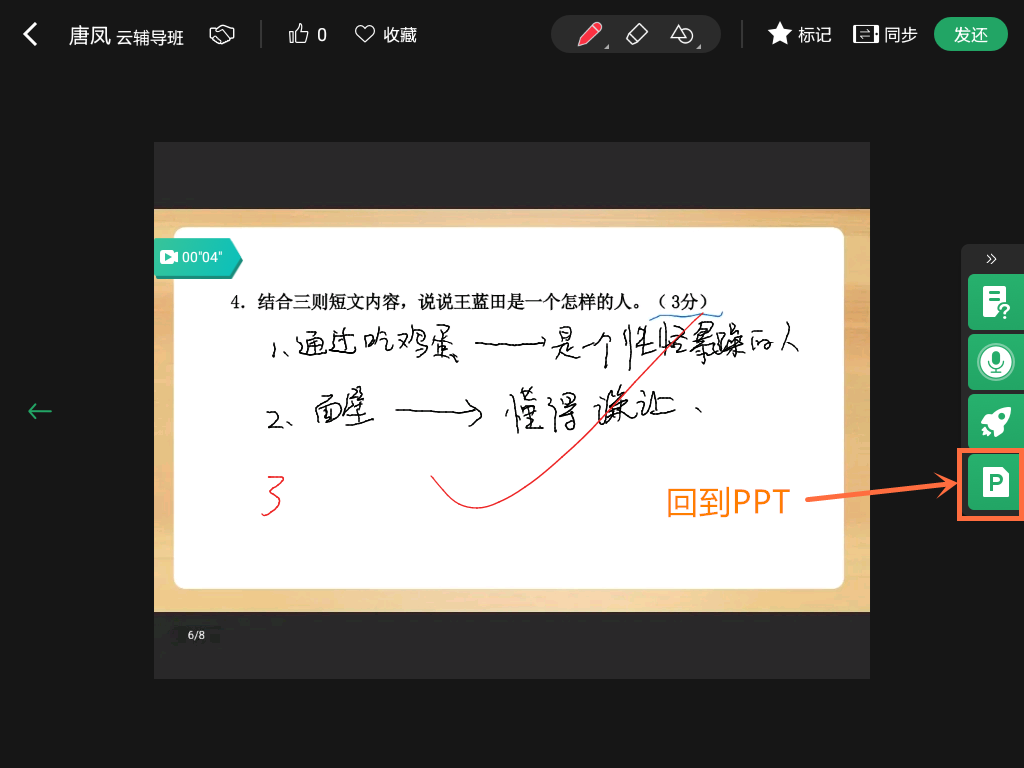 唐凤 云辅导班 0 收藏 标记 同步 发还
00"04"
4．结合三则短文内容，说说王蓝田是一个怎样的人。（3分）
1、通过吃鸡蛋 是一个性格暴躁的人
2、面壁 懂得谦让、
3
回到PPT
P
6/8